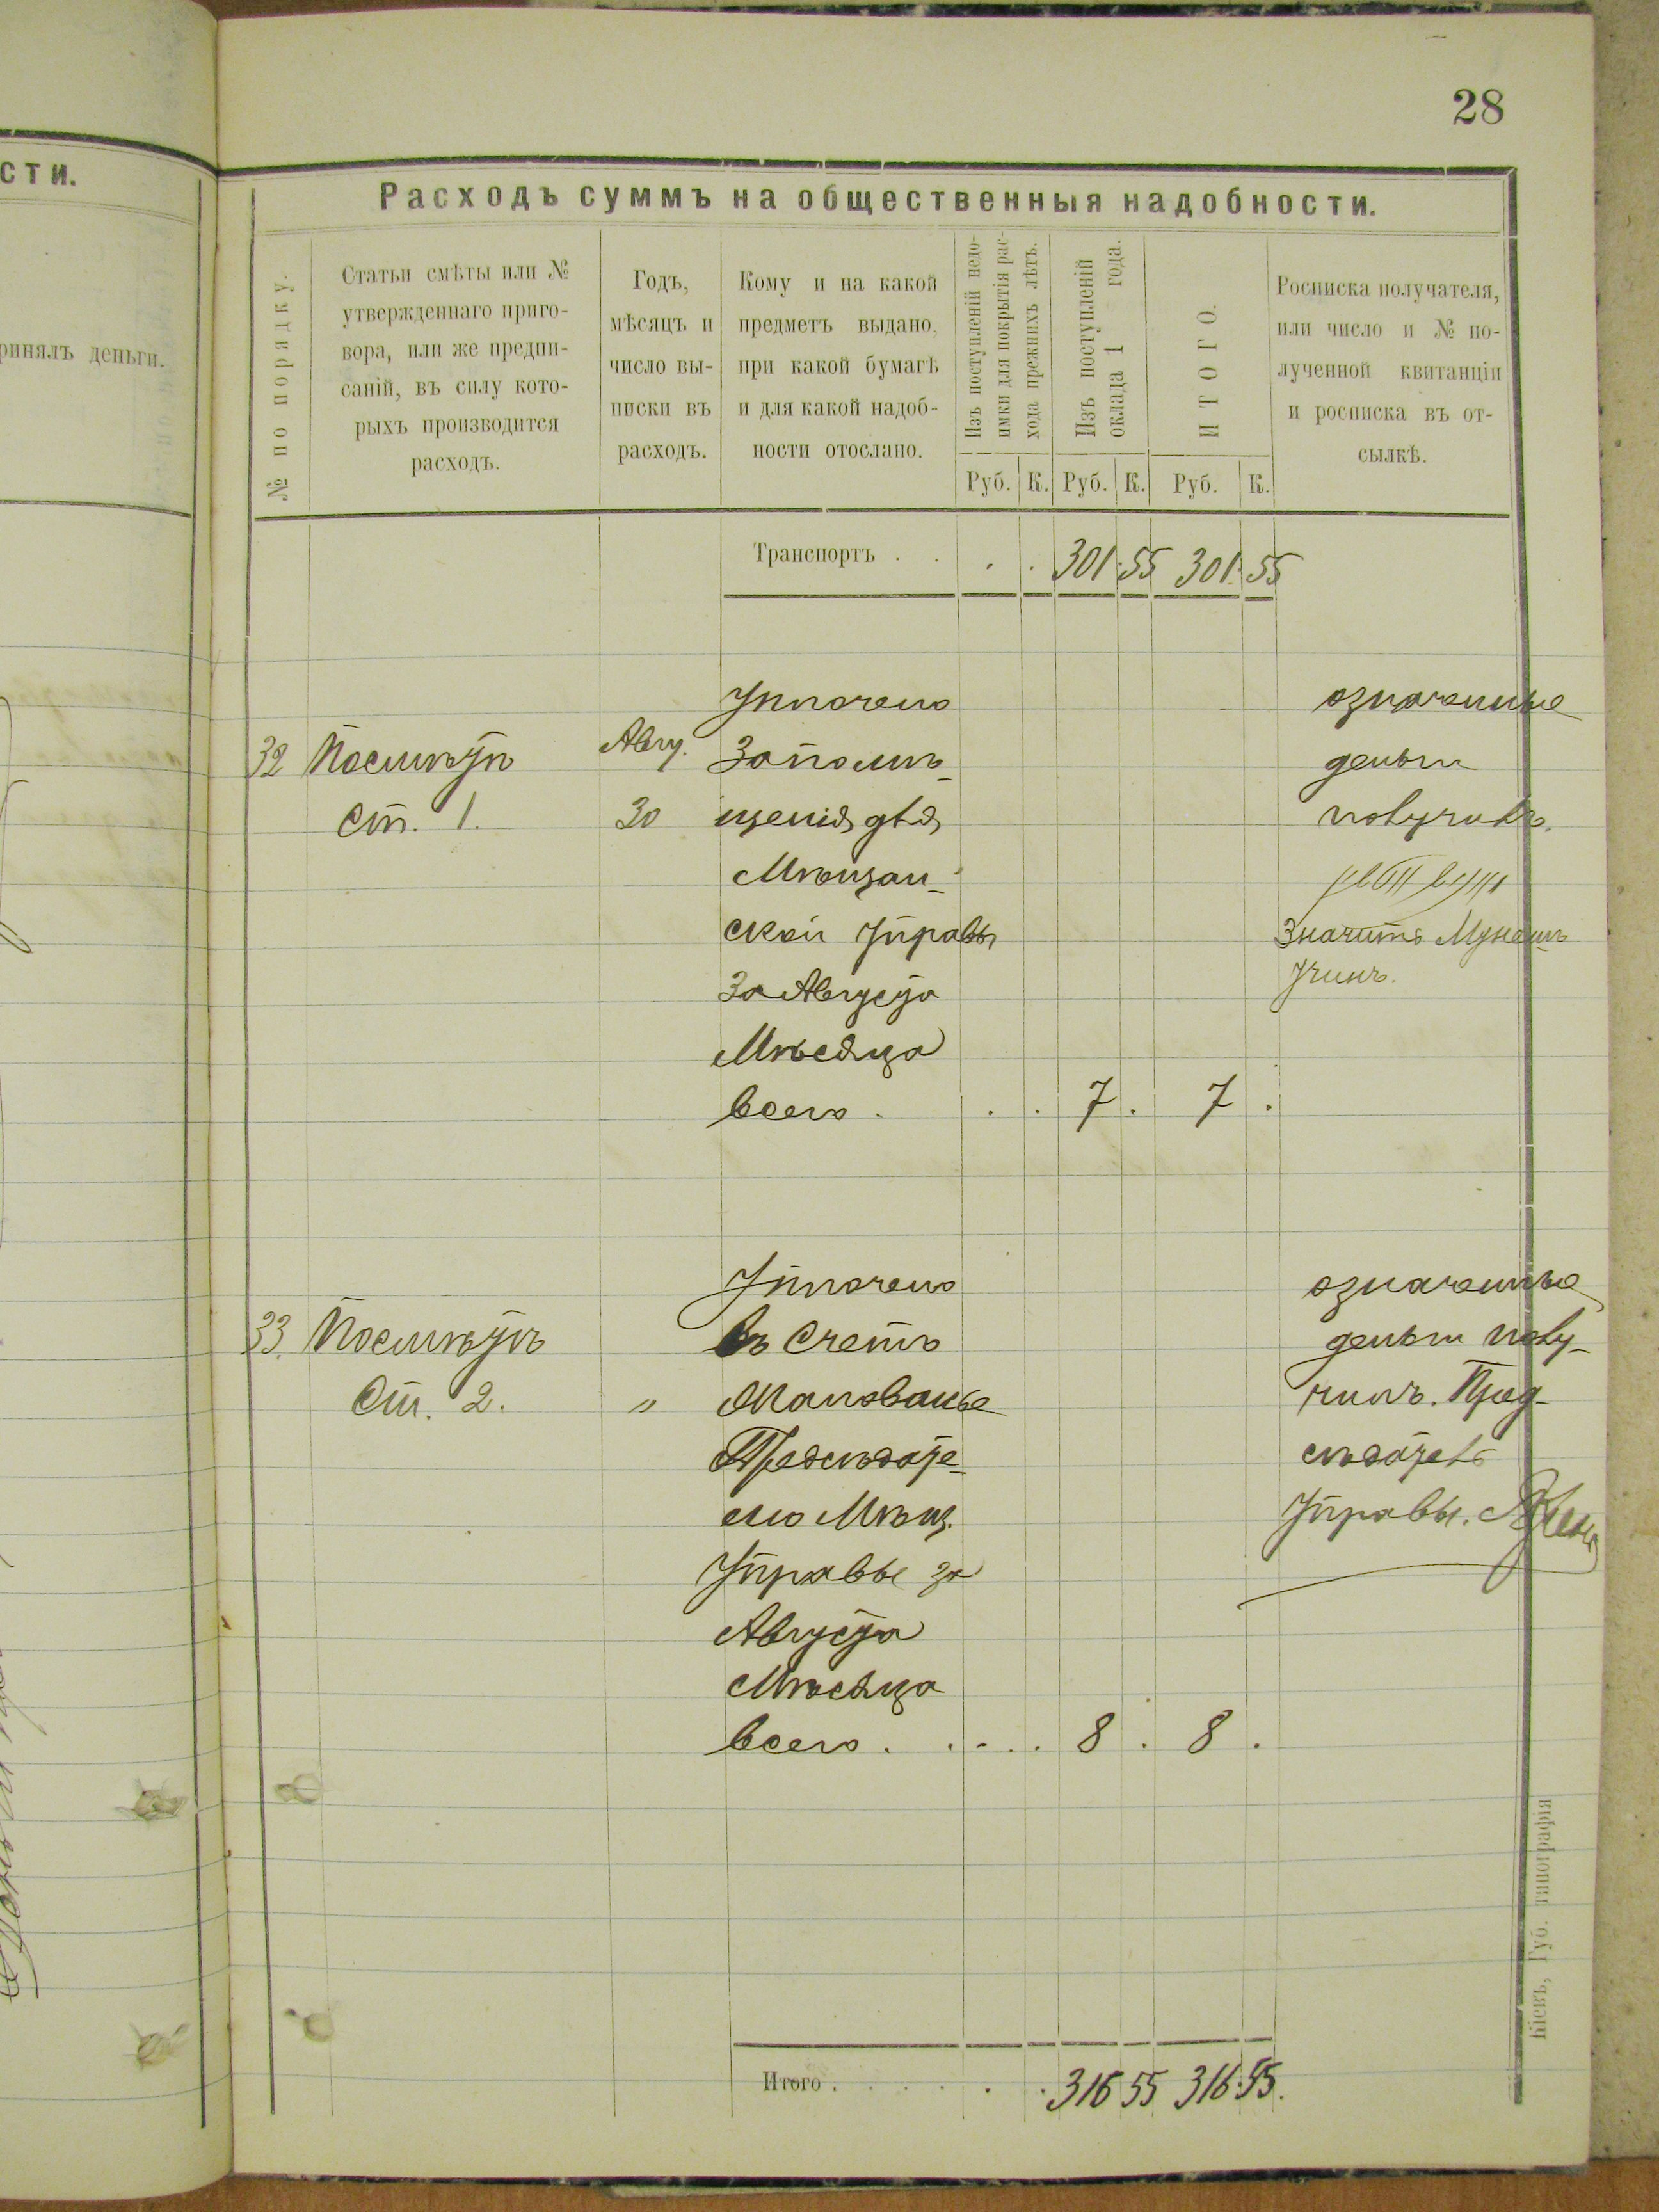 сти.
ринялъ деньги.
28
Расходъ суммъ на общественныя надобности.
№ по порядку.
Статьи смѣты или №
утвержденнаго приго-
вора, или же предпи-
саній, въ силу кото-
рыхъ производится
расходъ.
Годъ,
мѣсяцъ и
число вы-
писки въ
расходъ.
Кому и на какой
предметъ выдано,
при какой бумагѣ
и для какой надоб-
ности отослано.
Изъ поступленій недо-
имки для покрытія рас-
хода прежнихъ лѣтъ.
Изъ поступленій
оклада 1 года.
ИТОГО.
Росписка получателя,
или число и № по-
лученной квитанціи
и росписка въ от-
сылкѣ.
Руб. К. Руб. К. Руб. К.
Транспортъ . . . . 301.55 301.55
Уплочено
32 Посмѣтѣ Авгу. Запомѣ-
Ст. 1. 30 щенія для
Мѣщан-
ской Управы
За Августа
Мѣсяца
всего . . . 7 . 7 .
означенные
деньги
получилъ.
Значитъ
Уплочено
33. Посмѣтѣ въ Счетъ
Ст. 2. " Жалованье
Предсѣдате-
лю Мѣщ.
Управы за
Августа
Мѣсяца
всего . . . . . 8 . 8 .
означенные
деньги полу-
чилъ. Пред-
сѣдатель
Управы.
Итого . . . . . . . 316 55 316.55.
Кіевъ, Губ. типографія